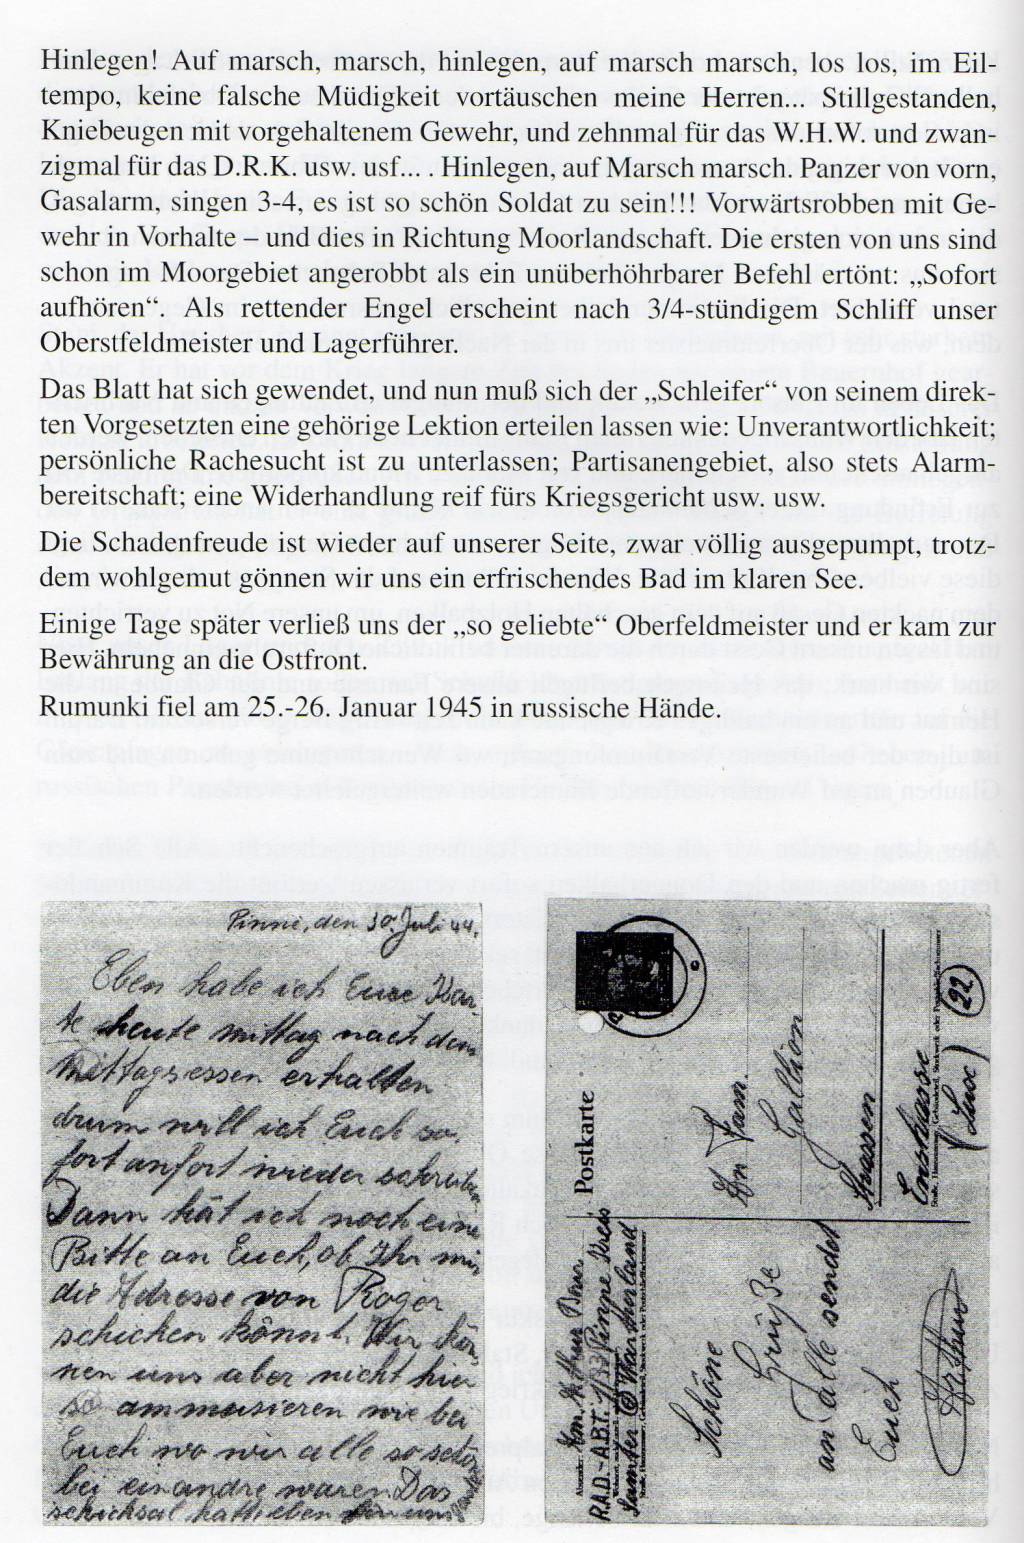 Hinlegen! Auf marsch, marsch, hinlegen, auf marsch marsch, los los, im Eil-
tempo, keine falsche Müdigkeit vortäuschen meine Herren... Stillgestanden,
Kniebeugen mit vorgehaltenem Gewehr, und zehnmal für das W.H.W. und zwan-
zigmal für das D.R.K. usw. usf... . Hinlegen, auf Marsch marsch. Panzer von vorn,
Gasalarm, singen 3-4, es ist so schön Soldat zu sein!!! Vorwärtsrobben mit Ge-
wehr in Vorhalte – und dies in Richtung Moorlandschaft. Die ersten von uns sind
schon im Moorgebiet angerobbt als ein unüberhöhrbarer Befehl ertönt: „Sofort
aufhören“. Als rettender Engel erscheint nach 3/4-stündigem Schliff unser
Oberstfeldmeister und Lagerführer.
Das Blatt hat sich gewendet, und nun muß sich der „Schleifer“ von seinem direk-
ten Vorgesetzten eine gehörige Lektion erteilen lassen wie: Unverantwortlichkeit;
persönliche Rachesucht ist zu unterlassen; Partisanengebiet, also stets Alarm-
bereitschaft; eine Widerhandlung reif fürs Kriegsgericht usw. usw.
Die Schadenfreude ist wieder auf unserer Seite, zwar völlig ausgepumpt, trotz-
dem wohlgemut gönnen wir uns ein erfrischendes Bad im klaren See.
Einige Tage später verließ uns der „so geliebte“ Oberfeldmeister und er kam zur
Bewährung an die Ostfront.
Rumunki fiel am 25.-26. Januar 1945 in russische Hände.
Pinne, den 30. Juli 44.
Eben habe ich Eure Kar-
te heute mittag nach dem
Mittagsessen erhalten
drum will ich Euch so
fort anfort wieder schreiben
Dann hät ich noch eine
Bitte an Euch, ob Ihr mir
die Adresse von Roger
schicken könnt. Wir kön-
nen uns aber nicht hier
so ammusieren wie bei
Euch wo wir alle so schön
bei einandre waren Das
schicksal hatt eben
Postkarte
An Fam
Gallion
Strassen
Enstrasse
Straße, Hausnummer, Gebäudeteil, Stockwerk oder Postschließfachnummer
(Lux)
(22)
Absender: Am. Arthur
R.A.D.-ABT. Pinne Kreis
Samter Wartherland
Straße, Hausnummer, Gebäudeteil, Stockwerk oder Postschließfachnummer
Schöne
Grüße
an Alle sendet
Euch
Arthur